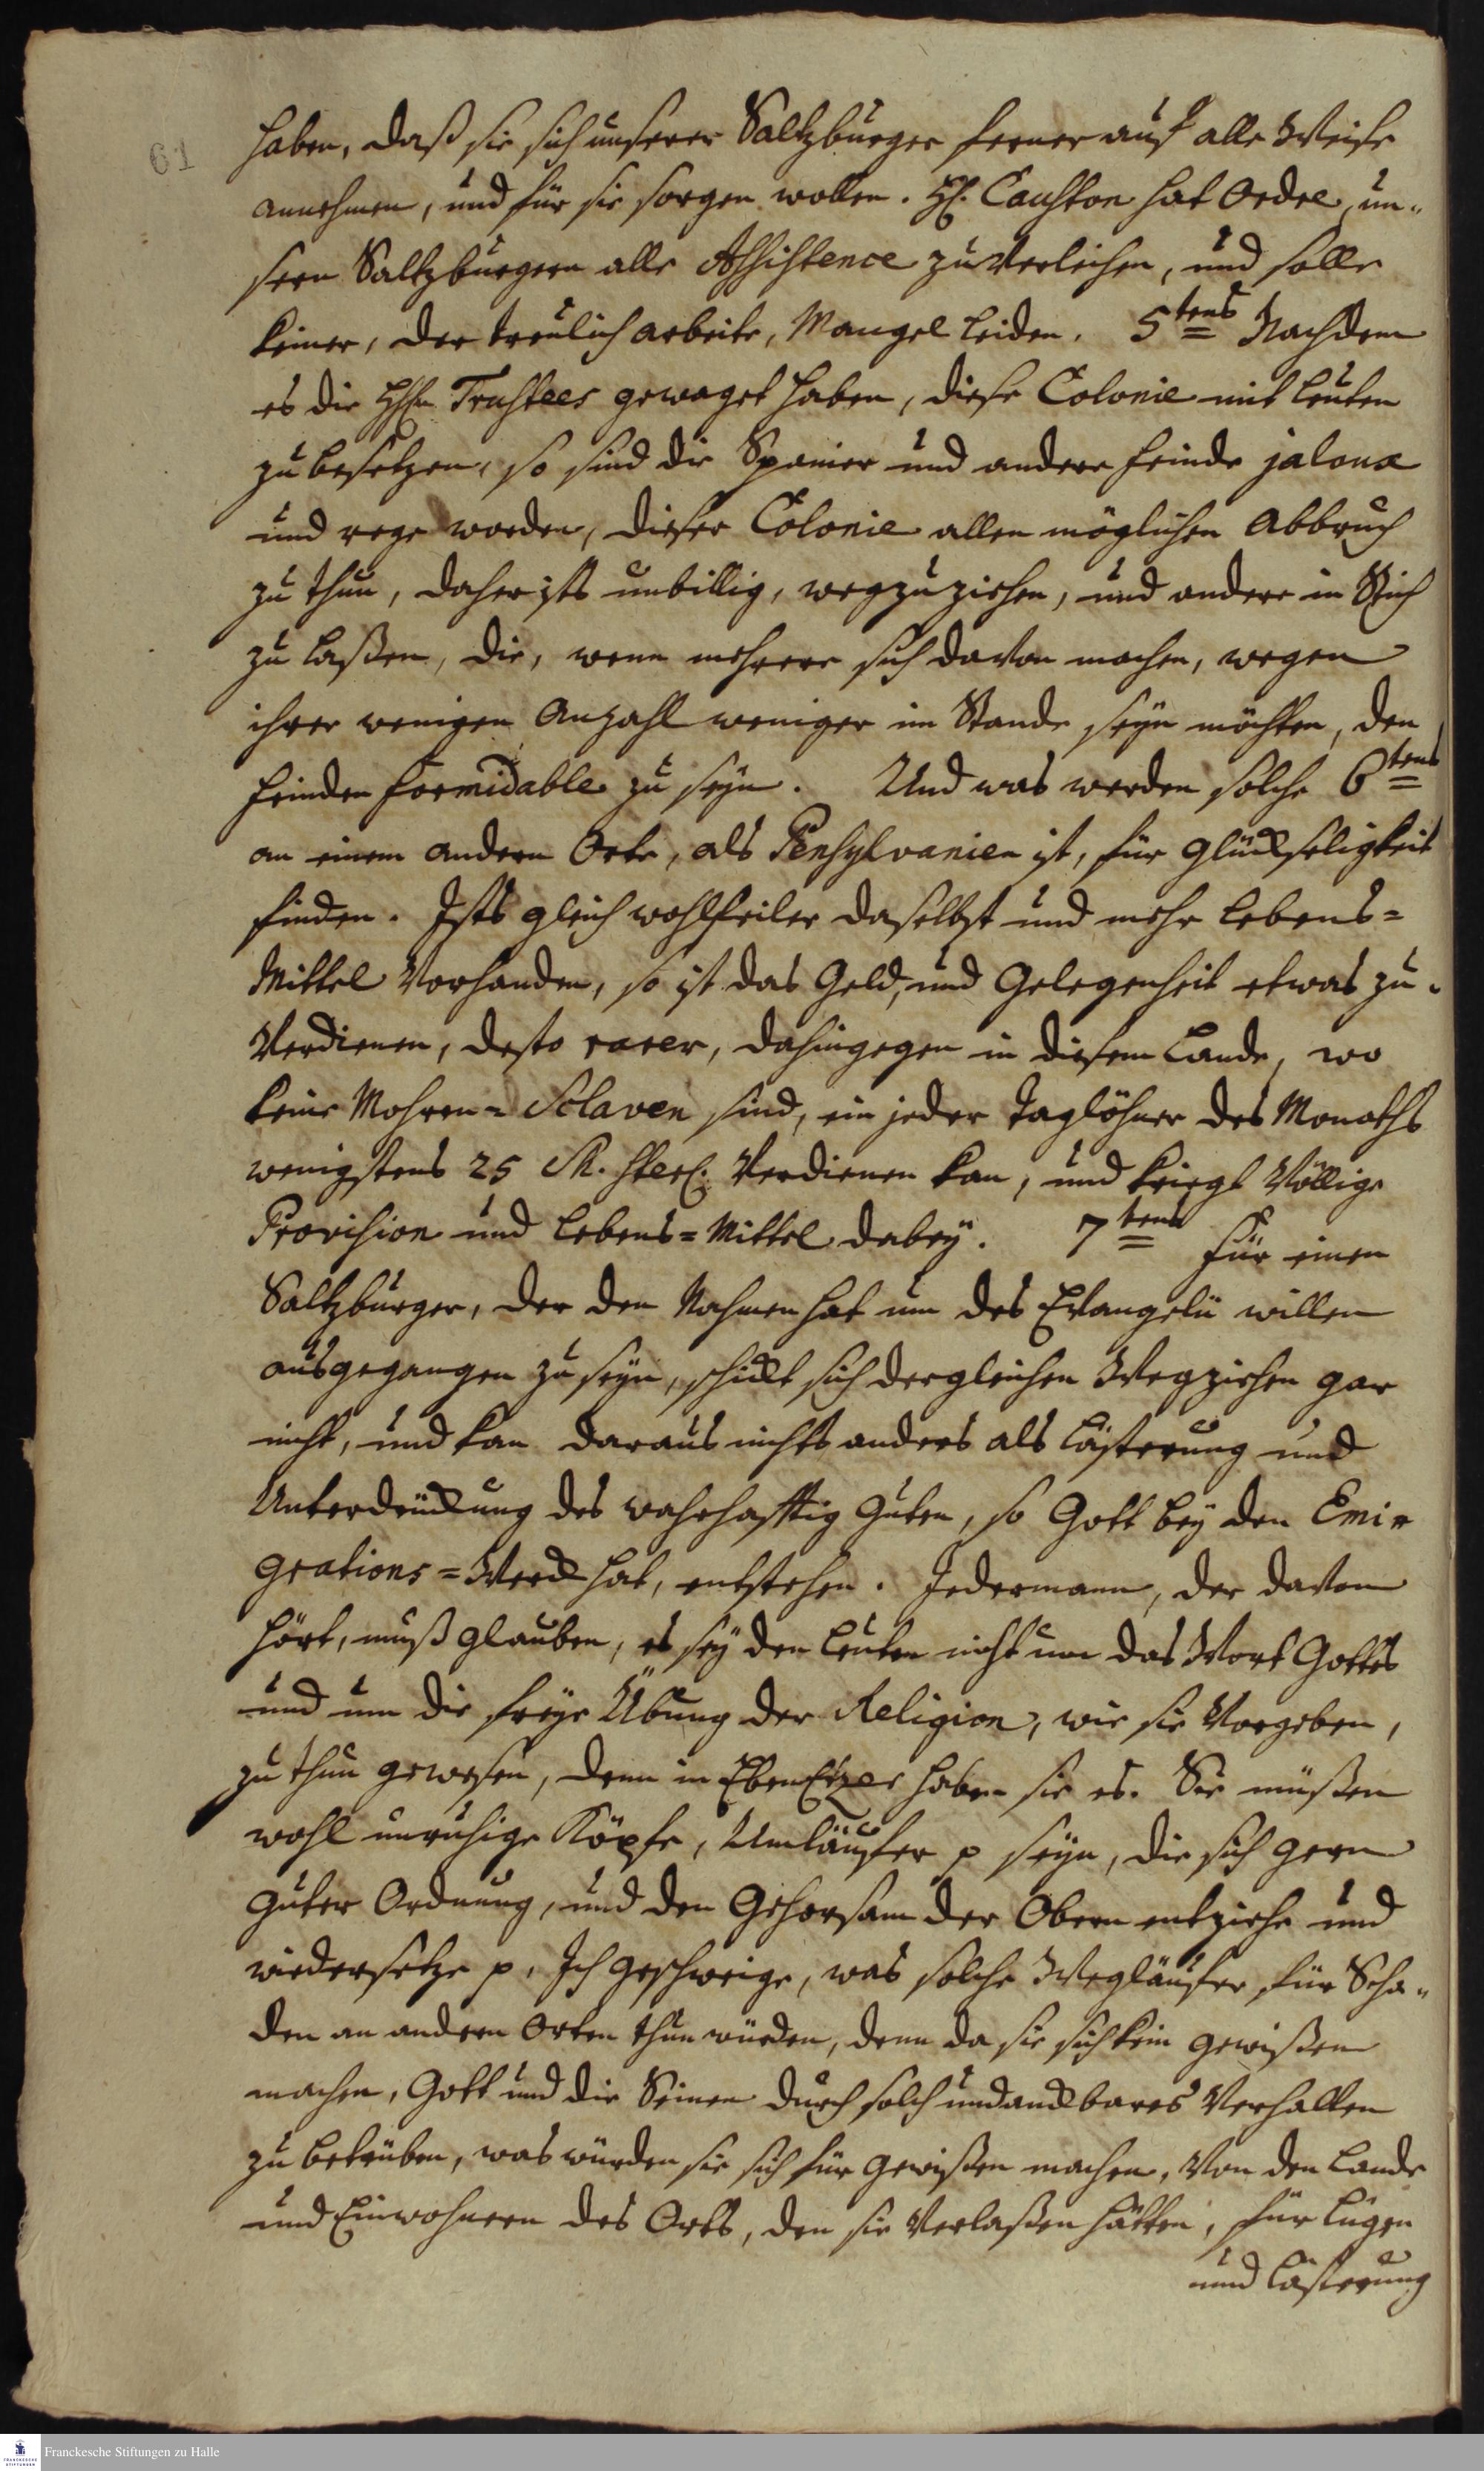 61
haben, daß sie sich unserer Saltzburger ferner auf alle Weise
annehmen, und für sie sorgen wollen. H. Causton hat Ordre, un-
sern Saltzburgern alle Assistence zu verleihen, und solle
keiner, der treulich arbeite, Mangel leiden. 5tens Nachdem
es die HHn Trustees gewaget haben, diese Colonie mit Leuten
zu besetzen, so sind die Spanier und andere Feinde jaloux
und rege worden, dieser Colonie allen möglichen Abbruch
zu thun, daher ists unbillig, wegzuziehen, und andere in Stich
zu laßen, die, wenn mehrere sich davon machen, wegen
ihrer wenigen Anzahl weniger im Stande seyn möchten, den
Feinden formidable zu seyn. Und was werden solche 6tens
an einem andern Orte, als Pensylvanien ist, für Glückseligkeit
finden. Ists gleich wohlfeiler daselbst und mehr Lebens=
Mittel vorhanden, so ist das Geld, und Gelegenheit etwas zu-
verdienen, desto rarer, dahingegen in diesem Lande, wo
keine Mohren=Sclaven sind, ein jeder Taglöhner des Monaths
wenigstens 25 Sh. sterl. verdienen kan, und kriegt völlige
Provision und Lebens=Mittel dabey. 7tens Für einen
Saltzburger, der den Nahmen hat um des Evangelii willen
ausgegangen zu seyn, schickt sich dergleichen Wegziehen gar
nicht, und kan daraus nichts anders als Lästerung und
Unterdrückung des wahrhafftig Guten, so Gott bey den Emi=
grations=Werck hat, entstehen. Jedermann, der davon
hört, muß glauben, es sey den Leuten nicht um das Wort Gottes
und um die freye Übung der Religion, wie sie vorgeben,
zu thun gewesen, denn in EbenEzer haben sie es. Sie müßen
wohl unruhige Köpfe, Umläuffer p seyn, die sich gern
guter Ordnung, und den Gehorsam der Obern entziehe und
wiedersetze p. Ich geschweige, was solche Wegläuffer für Scha-
den an andern Orten thun würden, denn da sie sich kein Gewißen
machen, Gott und die Seinen durch solch undanckbares Verhalten
zu betrüben, was würden sie sich für Gewißen machen, von den Lande
und Einwohnern des Orts, den sie verlaßen hätten, für Lügen
und Lästerung
Franckesche Stiftungen zu Halle